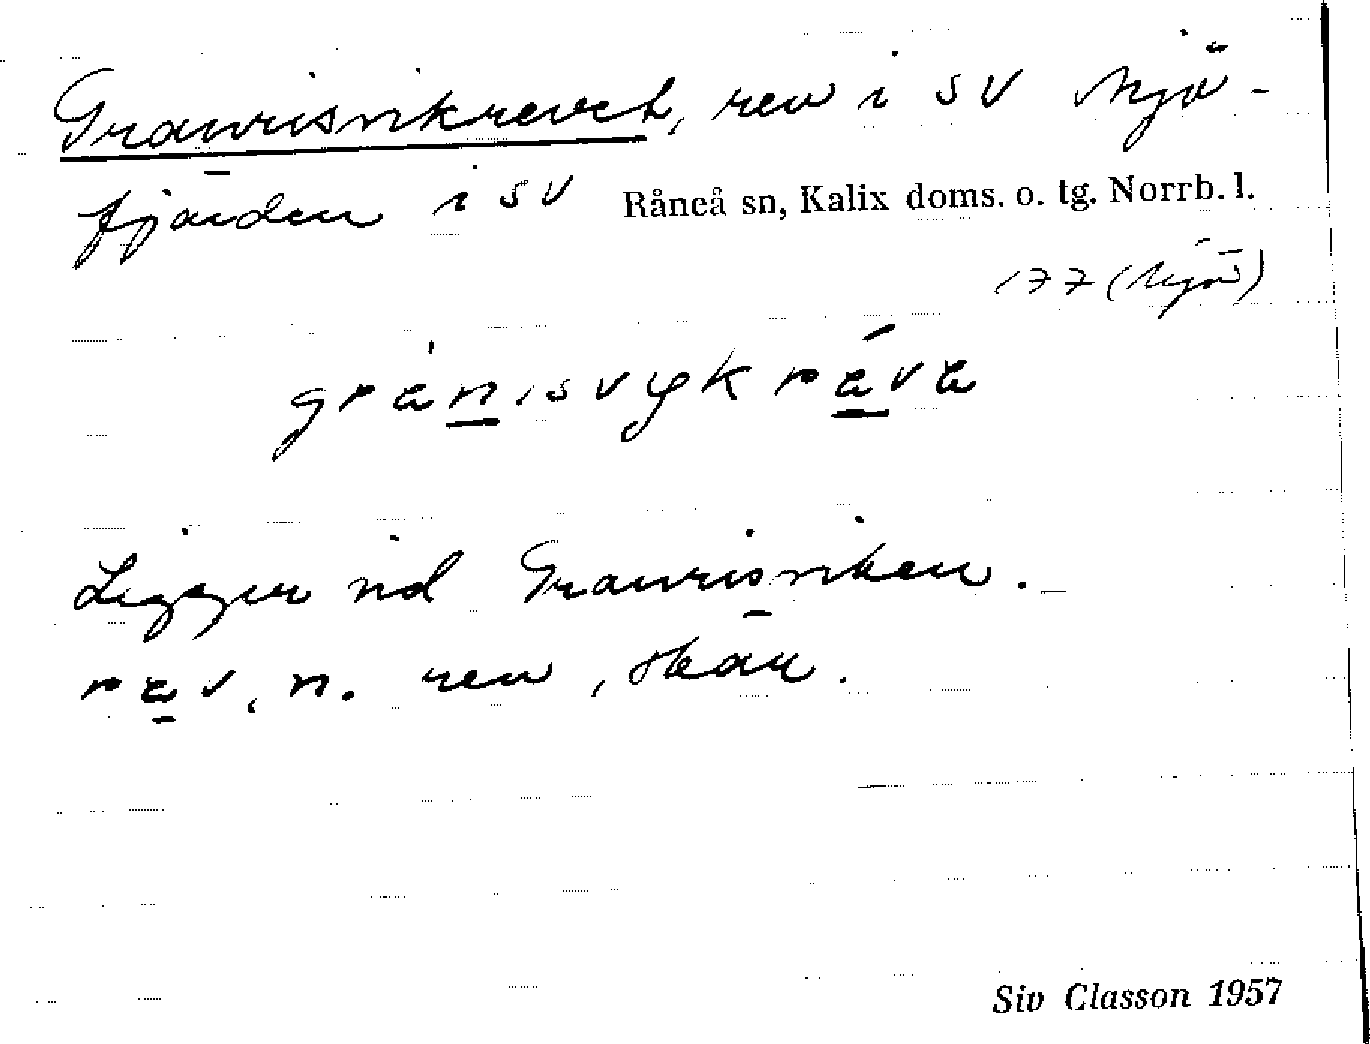 Granrisvikrevet, rev i SV Mjö-
fjärden i SV Råneå sn, Kalix doms. o. tg. Norrb. l.
177 (Mjö)
granisvykrava
Ligger vid Granrisviken.
rav, n. rev, skär.
Siv Classon 1957